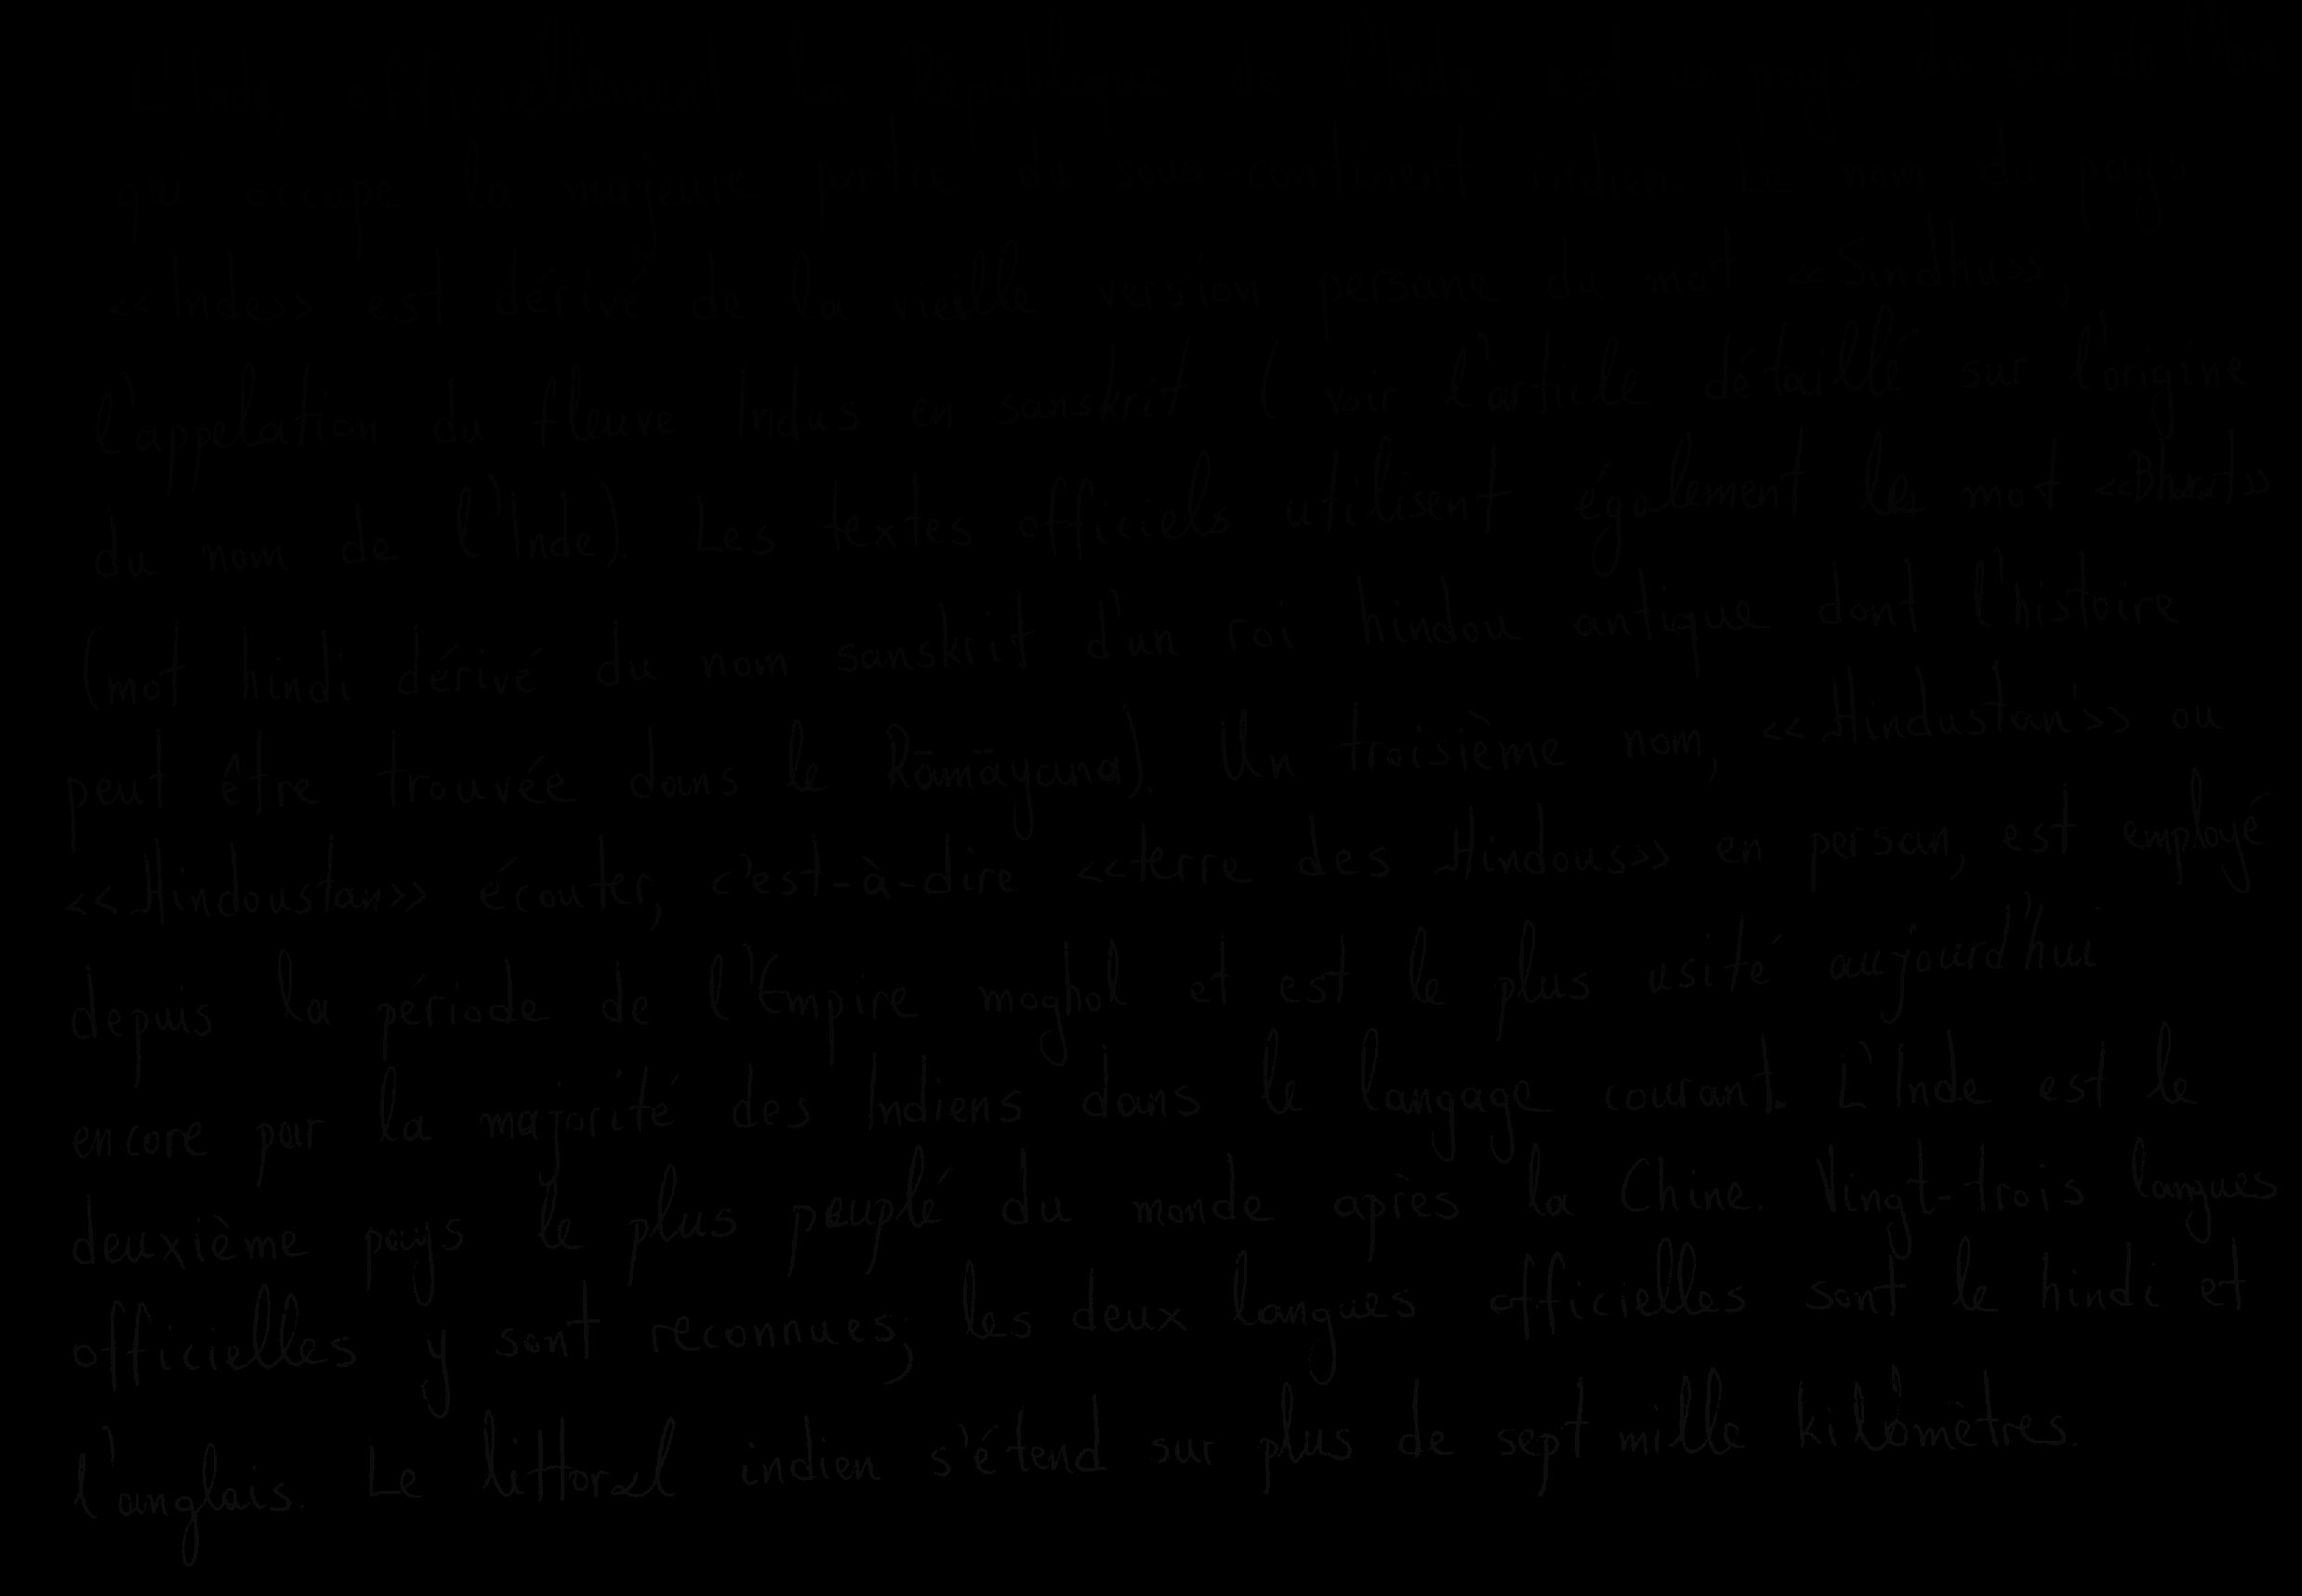 qui occupe la majeure partie du sous-continent indien Le nom du pays
<<Inde>> est dérivé de la vieille version persane du mot <<Sindhu>>,
l'appelation du fleuve Indus en sanskrit ( voir l'article détaillé sur l'origine
du nom de l'Inde). Les textes officiels utilisent également le mot <<Bharat>>
(mot hindi dérivé du nom sanskrit d'un roi hindou antique dont l'histoire
peut être trouvée dans le Rāmāyana). Un troisième nom, <<Hindustan>> ou
<<Hindoustan>> écouter, c'est-à-dire <<terre des Hindous>> en persan, est employé
depuis la période de l'Empire moghol et est le plus usité aujourd'hui
encore par la majorité des Indiens dans le langage courant. L'Inde est le
deuxième pays le plus peuplé du monde après la Chine. Vingt-trois langues
officielles y sont reconnues, les deux langues officielles sont le hindi et
l'anglais. Le littoral indien s'étend sur plus de sept mille kilomètres.